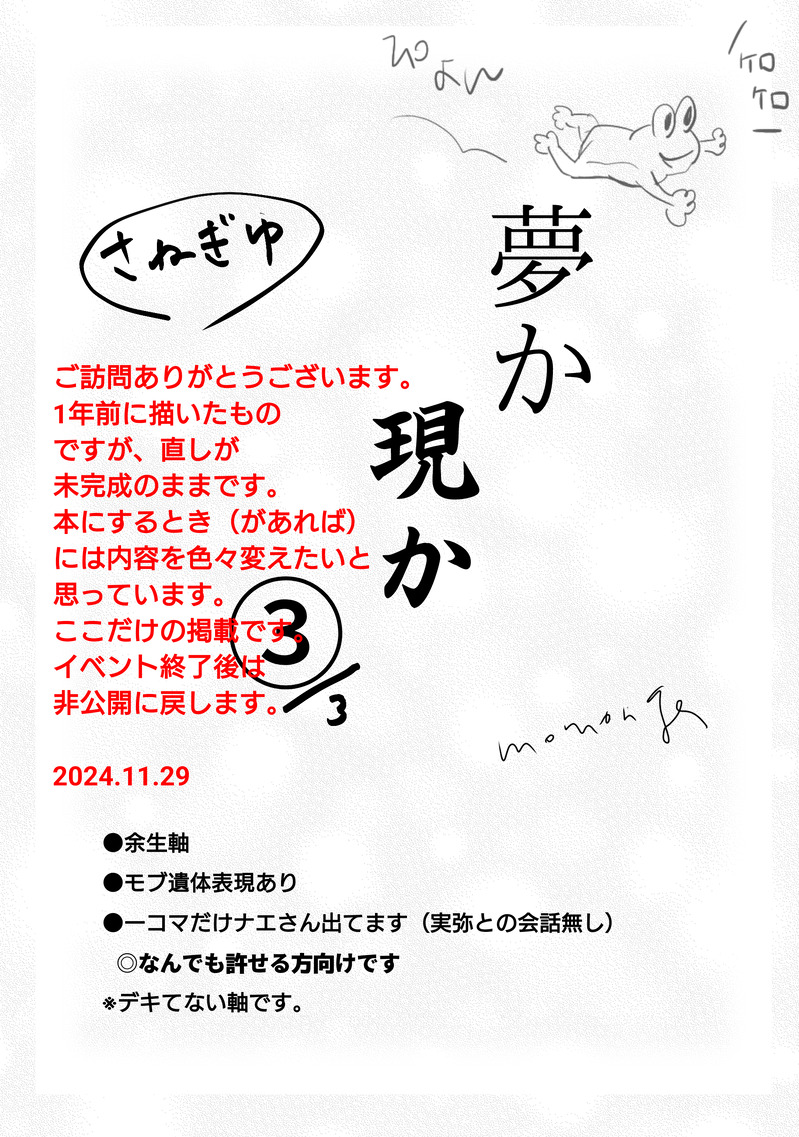 ぴょん
ケロ
ケロ
ー
さねぎゆ
夢か
現か
③/3
ご訪問ありがとうございます。
1年前に描いたもの
ですが、直しが
未完成のままです。
本にするとき（があれば）
には内容を色々変えたいと
思っています。
ここだけの掲載です。
イベント終了後は
非公開に戻します。
2024.11.29
●余生軸
●モブ遺体表現あり
●一コマだけナエさん出てます（実弥との会話無し）
◎なんでも許せる方向けです
※デキてない軸です。